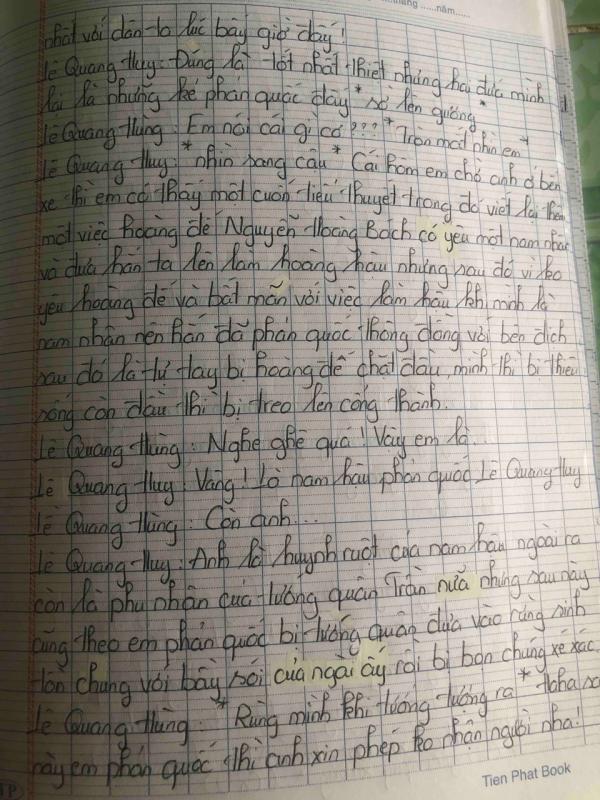 tháng ......năm......
nhất với dân ta lúc bấy giờ đấy!
Lê Quang Huy: Đúng là tốt nhất thiệt nhưng hai đứa mình
lại là những kẻ phản quốc đấy *sờ lên gương*
Lê Quang Hùng: Em nói cái gì cơ??? *Tròn mắt nhìn em*
Lê Quang Huy: *nhìn sang cậu* Cái hôm em chờ anh ở bến
xe thì em có thấy một cuốn tiểu thuyết trong đó viết lại thêm
một việc hoàng đế Nguyễn Hoàng Bách có yêu một nam nhân
và đưa hắn ta lên làm hoàng hậu nhưng sau đó vì ko
yêu hoàng đế và bất mãn với việc làm hậu khi mình là
nam nhân nên hắn đã phản quốc thông đồng với bên địch
sau đó là tự tay bị hoàng đế chặt đầu, mình thì bị thiêu
sống còn đầu thì bị treo lên cổng thành.
Lê Quang Hùng: Nghe ghê quá! Vậy em là...
Lê Quang Huy: Vâng! Là nam hậu phản quốc Lê Quang Huy
Lê Quang Hùng: Còn anh...
Lê Quang Huy: Anh là huynh ruột của nam hậu ngoài ra
còn là phu nhân của tướng quân Trần nữa nhưng sau này
cũng theo em phản quốc bị tướng quân đưa vào rừng sinh
tồn chung với bầy sói của ngài ấy rồi bị bọn chúng xé xác
Lê Quang Hùng: *Rùng mình khi tưởng tượng ra*
này em phản quốc thì anh xin phép ko nhận người nha!
Tien Phat Book
TP